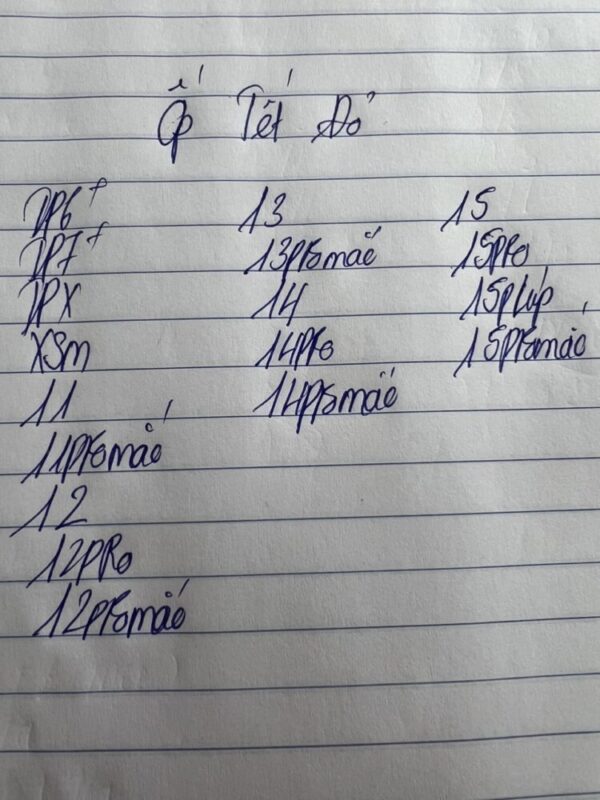 Ốp Tết Đỏ
IP6+
IP7+
IPX
XSm
11
11promắc
12
12PRo
12promắc
13
13promắc
14
14pro
14promắc
15
15pro
15plúp
15promắc